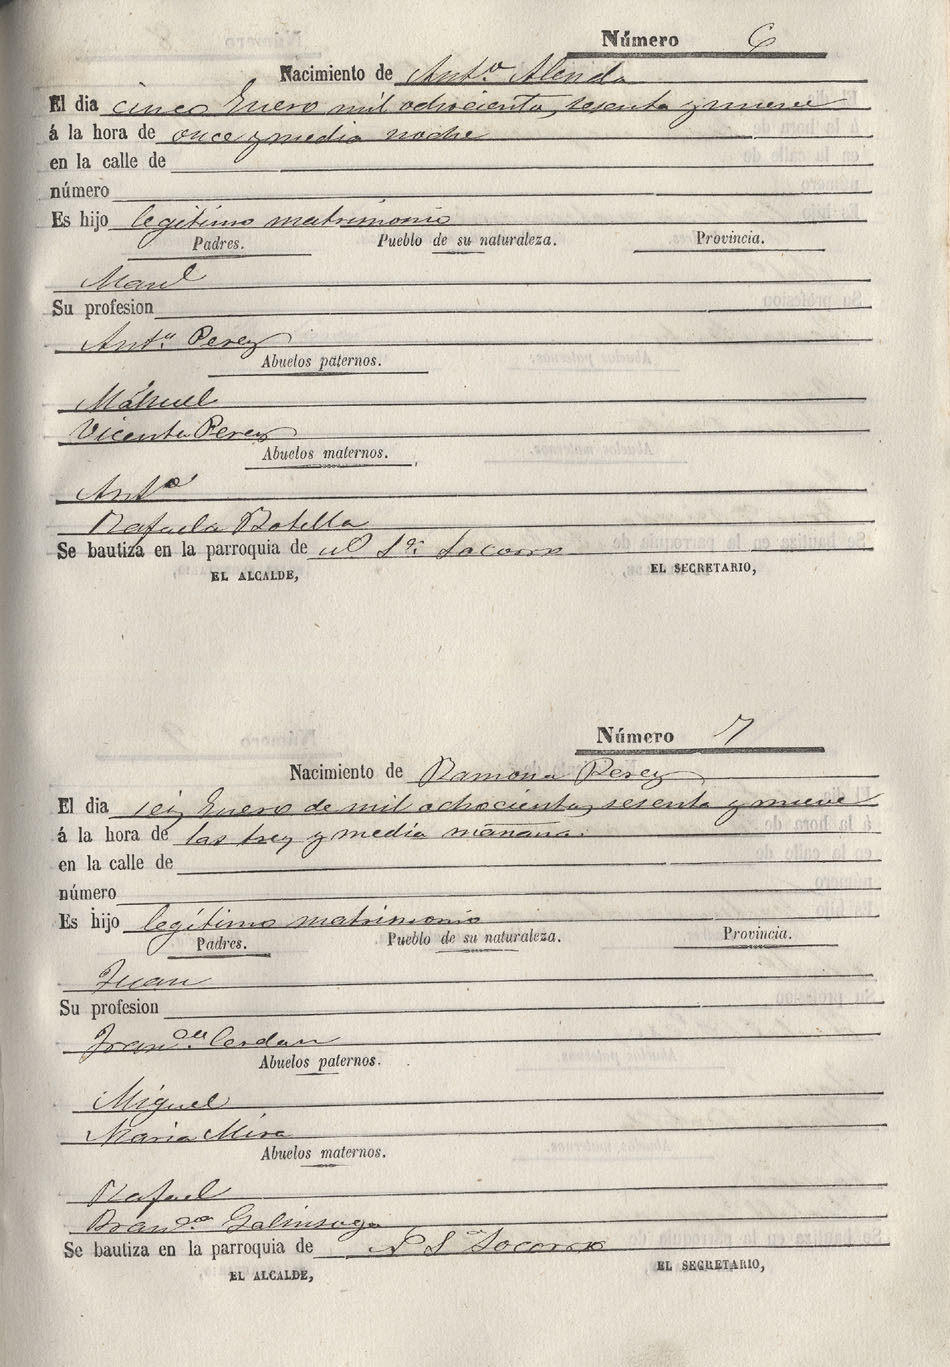 Número 6
Nacimiento de Ant.º Alenda
El dia cinco Enero mil ochocientos sesenta y nueve
á la hora de once y media noche
en la calle de
número
Es hijo legitimo matrimonio
Padres. Pueblo de su naturaleza. Provincia.
Man.l
Su profesion
Ant.a Perez
Abuelos paternos.
Manuel
Vicenta Perez
Abuelos maternos.
Ant.º
Rafaela Botella
Se bautiza en la parroquia de Socorro
EL ALCALDE, EL SECRETARIO,
Número 7
Nacimiento de Ramona Perez
El dia seis Enero de mil ochocientos sesenta y nueve
á la hora de las tres y media mañana.
en la calle de
número
Es hijo legítimo matrimonio
Padres. Pueblo de su naturaleza. Provincia.
Juan
Su profesion
Fran.ca Cerdan
Abuelos paternos.
Miguel
Maria Mira
Abuelos maternos.
Rafael
Fran.ca Galinsoga
Se bautiza en la parroquia de N S Socorro
EL ALCALDE, EL SECRETARIO,